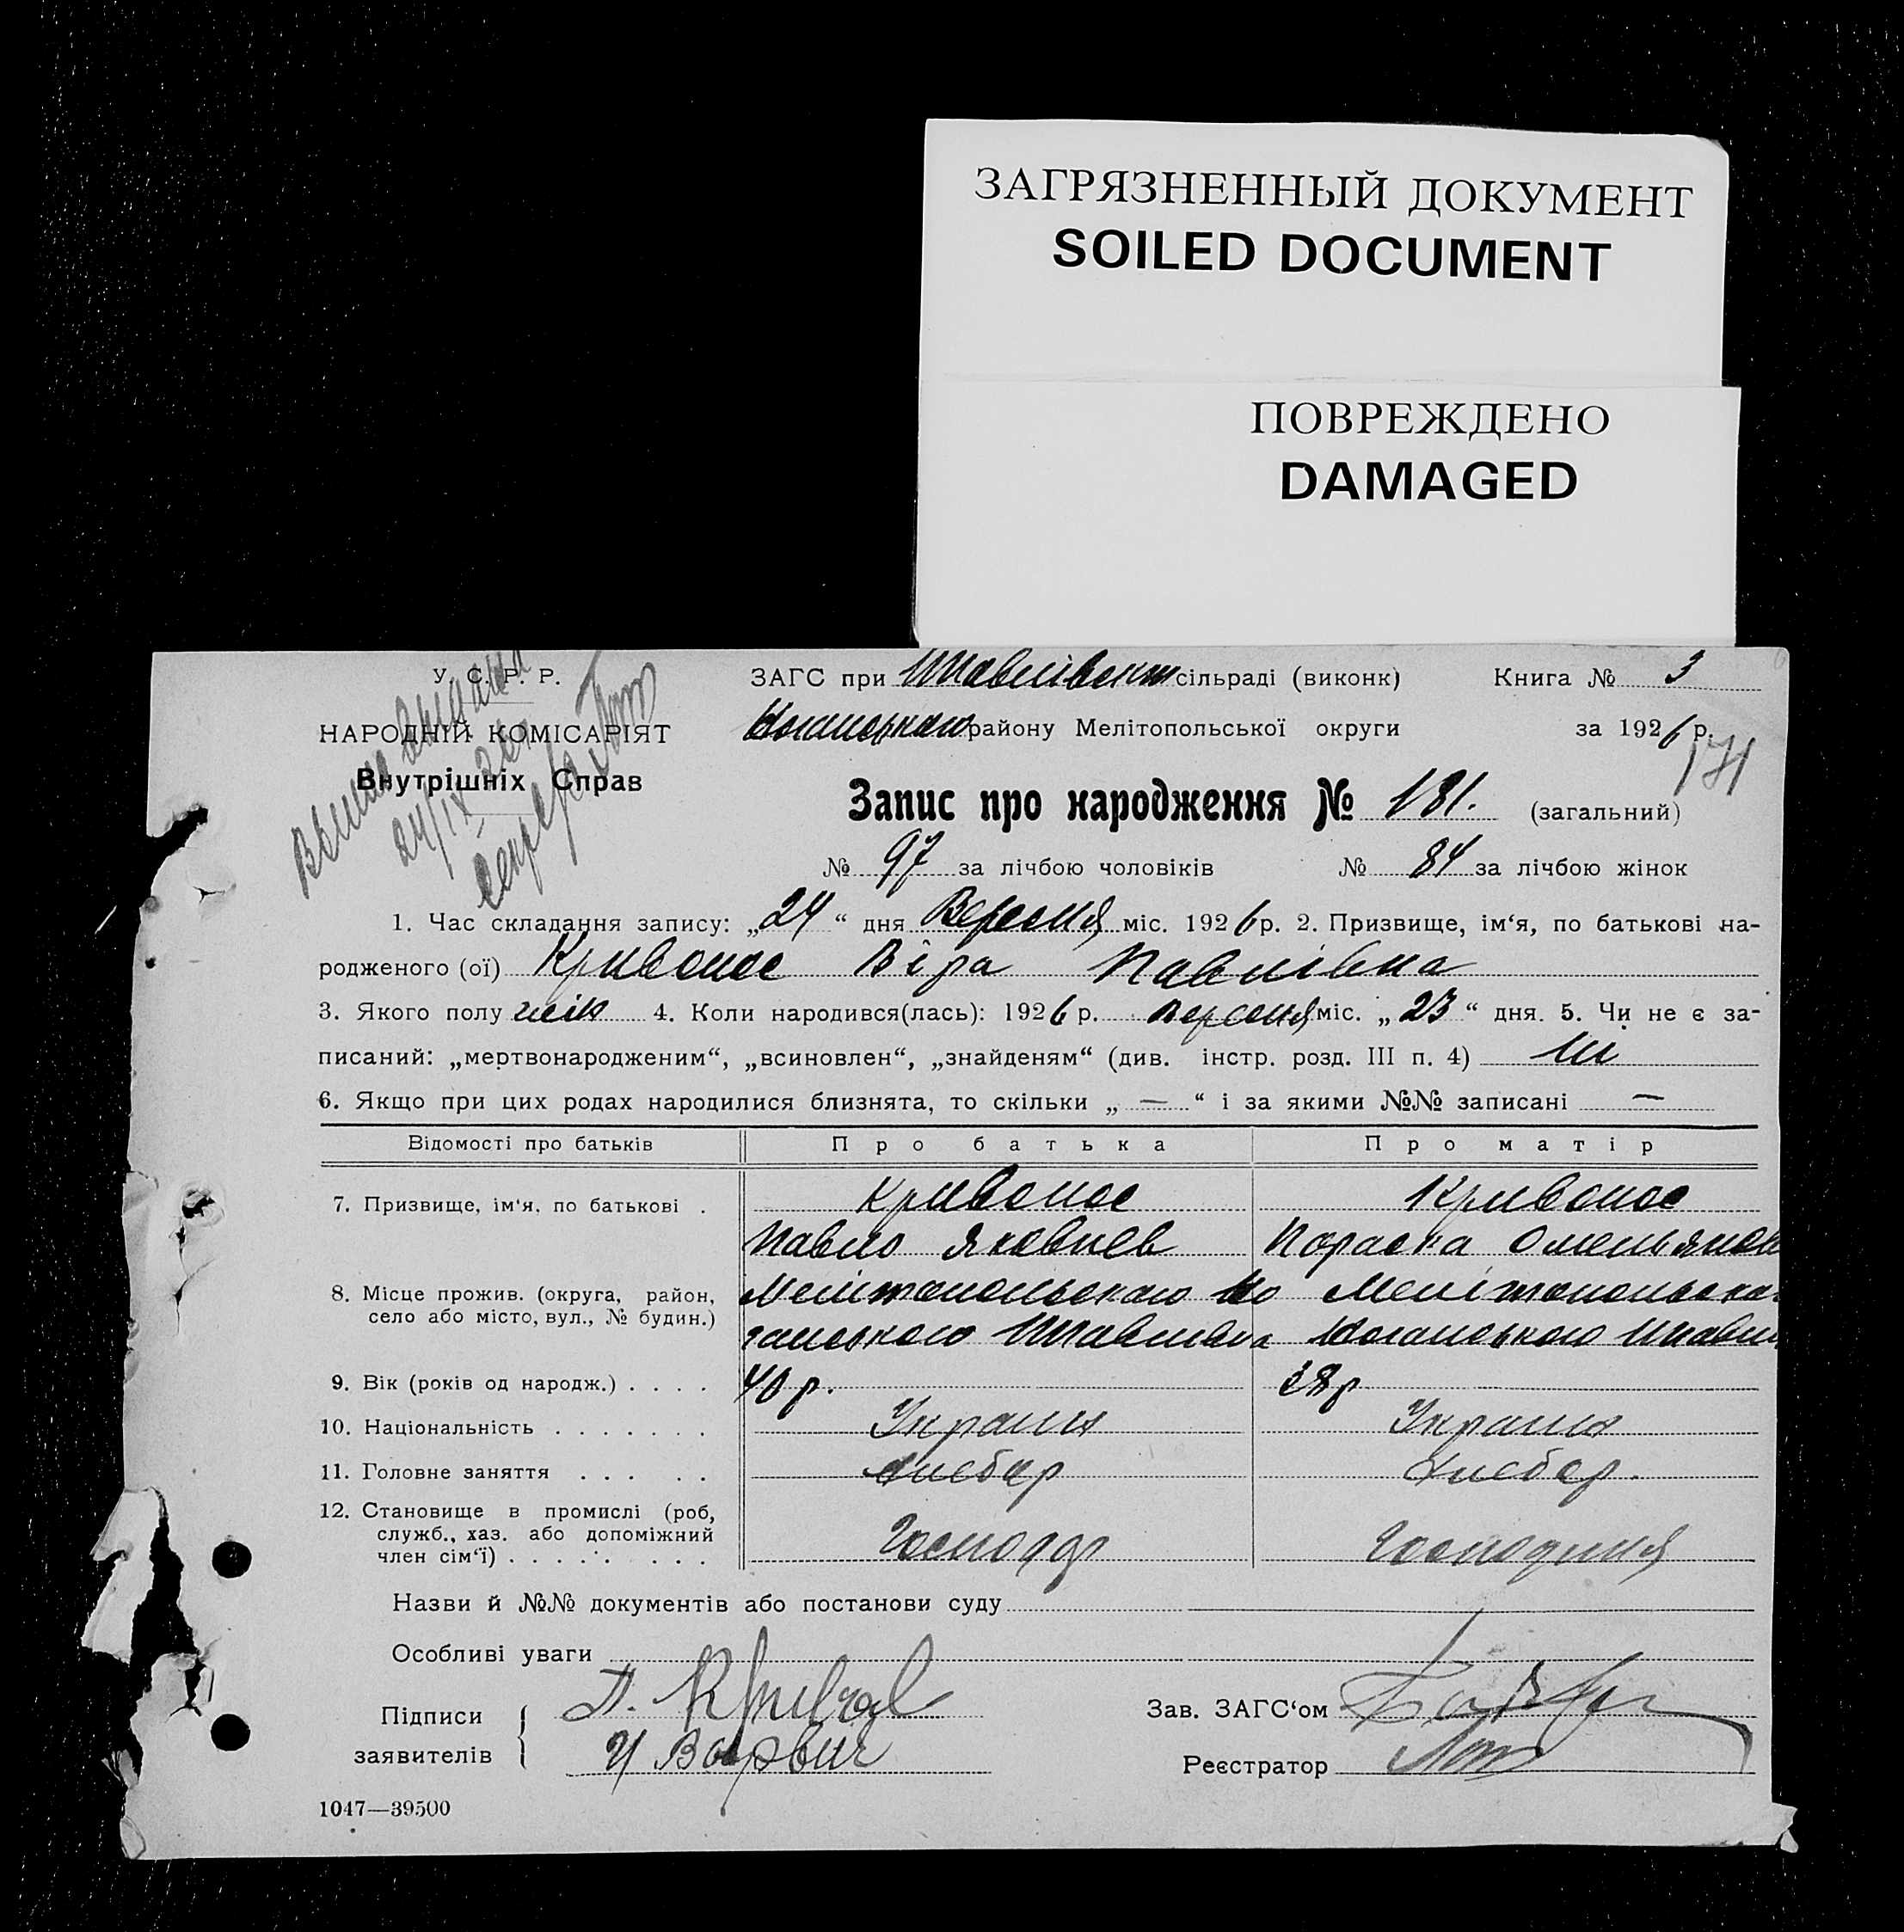 ЗАГРЯЗНЕННЫЙ ДОКУМЕНТ
SOILED DOCUMENT
ПОВРЕЖДЕНО
DAMAGED
У. С. Р. Р.
НАРОДНІЙ КОМІСАРІЯТ
Внутрішніх Справ
24/IX
ЗАГС при сільраді (виконк)
Книга № 3
району Мелітопольської округи
за 1926 р.
171
Запис про народження № 181. (загальний)
№ 97 за лічбою чоловіків № 84 за лічбою жінок
1. Час складання запису: „24“ дня Вересня міс. 1926 р. 2. Призвище, ім‘я, по батькові на-
родженого (ої) Кривонос Віра Павлівна
3. Якого полу жін 4. Коли народився(лась): 1926 р. вересня міс. „23“ дня. 5. Чи не є за-
писаний: „мертвонародженим“, „всиновлен“, „знайденям“ (див. інстр. розд. III п. 4) Ні
6. Якщо при цих родах народилися близнята, то скільки „—“ і за якими №№ записані —
Відомості про батьків Про батька Про матір
7. Призвище, ім‘я, по батькові . Кривонос Кривонос
Павло Яковлев Параска Омельянов
8. Місце прожив. (округа, район, Мелітопольського Но Мелітопольско
село або місто, вул., № будин.) ганського Ноганського
9. Вік (років од народж.) . . . . 40 р. 38 р
10. Національність . . . . . . . Україн Україн
11. Головне заняття . . . . . Хлебор Хлебор.
12. Становище в промислі (роб,
служб., хаз. або допоміжний
член сім‘ї) . . . . . . . . Господар Господиня
Назви й №№ документів або постанови суду
Особливі уваги
Підписи
заявителів
П.
Зав. ЗАГС‘ом
Реєстратор
1047—39500